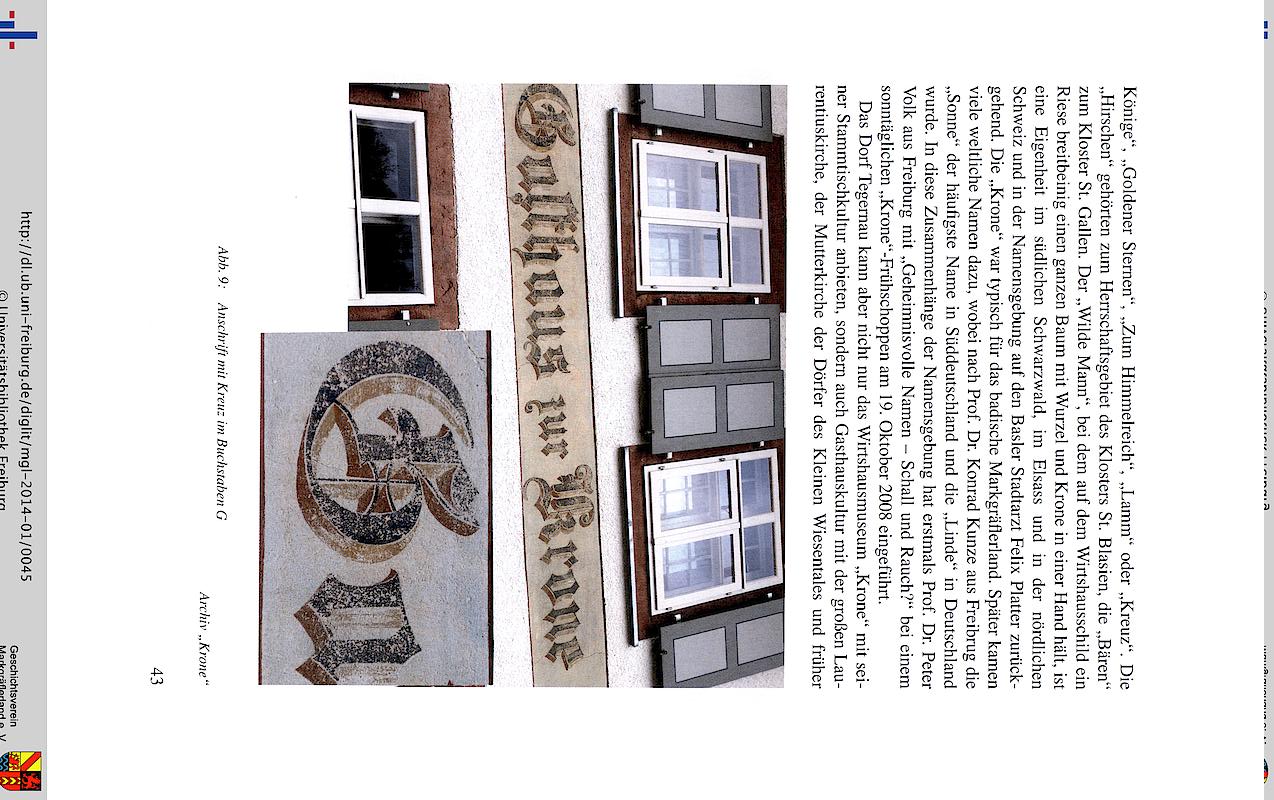 Könige“, „Goldener Sternen“, „Zum Himmelreich“, „Lamm“ oder „Kreuz“. Die
„Hirschen“ gehörten zum Herrschaftsgebiet des Klosters St. Blasien, die „Bären“
zum Kloster St. Gallen. Der „Wilde Mann“, bei dem auf dem Wirtshausschild ein
Riese breitbeinig einen ganzen Baum mit Wurzel und Krone in einer Hand hält, ist
eine Eigenheit im südlichen Schwarzwald, im Elsass und in der nördlichen
Schweiz und in der Namensgebung auf den Basler Stadtarzt Felix Platter zurück-
gehend. Die „Krone“ war typisch für das badische Markgräflerland. Später kamen
viele weltliche Namen dazu, wobei nach Prof. Dr. Konrad Kunze aus Freibrug die
„Sonne“ der häufigste Name in Süddeutschland und die „Linde“ in Deutschland
wurde. In diese Zusammenhänge der Namensgebung hat erstmals Prof. Dr. Peter
Volk aus Freiburg mit „Geheimnisvolle Namen – Schall und Rauch?“ bei einem
sonntäglichen „Krone“-Frühschoppen am 19. Oktober 2008 eingeführt.
Das Dorf Tegernau kann aber nicht nur das Wirtshausmuseum „Krone“ mit sei-
ner Stammtischkultur anbieten, sondern auch Gasthauskultur mit der großen Lau-
rentiuskirche, der Mutterkirche der Dörfer des Kleinen Wiesentales und früher
Gasthaus zur Krone
Abb. 9: Anschrift mit Kreuz im Buchstaben G
Archiv „Krone“
43
http://dl.ub.uni-freiburg.de/diglit/mgl-2014-01/0045
© Universitätsbibliothek Freiburg
Geschichtsverein
Markgräflerland e. V.